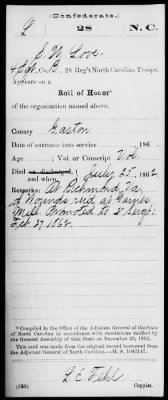 (Confederate.)
L 28 N.C.
E W Love
4 Sgt, Co. B, 28 Reg't North Carolina Troops.
Appears on a
Roll of Honor*
of the organization named above.
County Gaston
Date of entrance into service , 186
Age ; Vol. or Conscript Vol
Died or discharged, and when, July 25 1862
Remarks: At Richmond Va,
of Wounds recd at Gaines
Mill Promoted to 4 Sergt.
Feb 27, 1862.
*Compiled in the Office of the Adjutant General of the State
of North Carolina in accordance with resolutions ratified by
the General Assembly of that State on December 20, 1862.
This card was made from the original record borrowed from
the Adjutant General of North Carolina.—M. S. 1043147.
(593) Copyist.